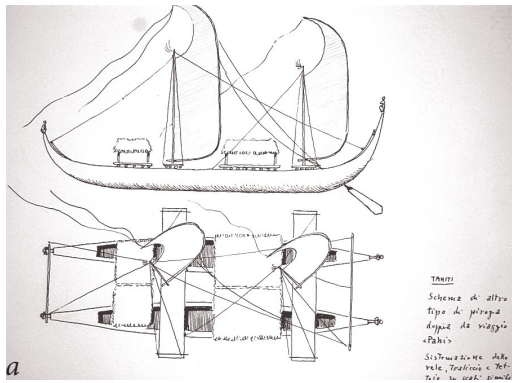 TAHITI
Schema di altro
tipo di piroga
doppia da viaggio
«Pahi»
Sistemazione delle
vele, Traliccio e Tet-
toie su scafi simile
a